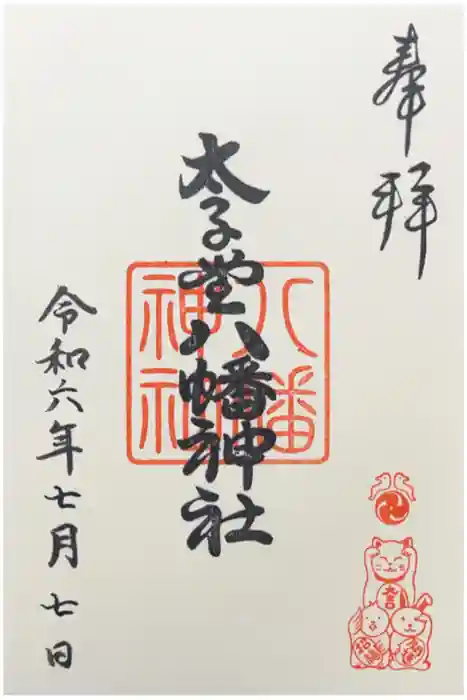 奉拝
太子堂八幡神社
八幡
神社
令和六年七月七日
大吉